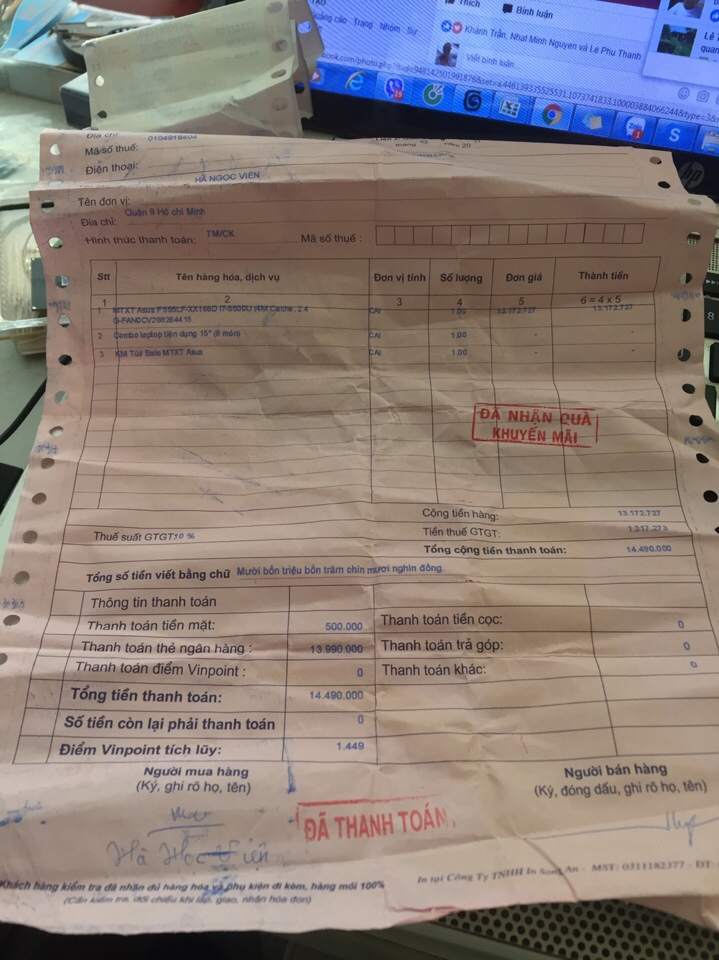 Thích
Bình luận
Trang Nhóm Sự
Khánh Trần, Nhat Minh Nguyen và Le Phu Thanh
Viết bình luận...
Địa chỉ
Mã số thuế:
0104918404
Điện thoại:
HÀ NGỌC VIÊN
Tên đơn vị:
Địa chỉ: Quận 9 Hồ chí Minh
Hình thức thanh toán: TM/CK Mã số thuế :
Stt Tên hàng hóa, dịch vụ Đơn vị tính Số lượng Đơn giá Thành tiền
1 2 3 4 5 6 = 4 x 5
1 MTXT Asus CAI 1.00 13.172.727 13.172.727
2 Combo laptop tiện dụng 15" (6 món) CAI 1.00 - -
3 KM Túi MTXT Asus CAI 1.00 - -
ĐÃ NHẬN QUÀ
KHUYẾN MÃI
Cộng tiền hàng: 13.172.727
Thuế suất GTGT 10 % Tiền thuế GTGT: 1.317.273
Tổng cộng tiền thanh toán: 14.490.000
Tổng số tiền viết bằng chữ Mười bốn triệu bốn trăm chín mươi nghìn đồng.
Thông tin thanh toán
Thanh toán tiền mặt: 500.000 Thanh toán tiền cọc: 0
Thanh toán thẻ ngân hàng : 13.990.000 Thanh toán trả góp: 0
Thanh toán điểm Vinpoint : 0 Thanh toán khác: 0
Tổng tiền thanh toán: 14.490.000
Số tiền còn lại phải thanh toán 0
Điểm Vinpoint tích lũy: 1.449
Người mua hàng Người bán hàng
(Ký, ghi rõ họ, tên) (Ký, đóng dấu, ghi rõ họ, tên)
ĐÃ THANH TOÁN
Hà Ngọc Viện
Khách hàng kiểm tra đã nhận đủ hàng hóa và phụ kiện đi kèm, hàng mới 100%
(Cần kiểm tra, đối chiếu khi lập, giao, nhận hóa đơn)
In tại Công Ty TNHH In Song An - MST: 0311182377 - ĐT: